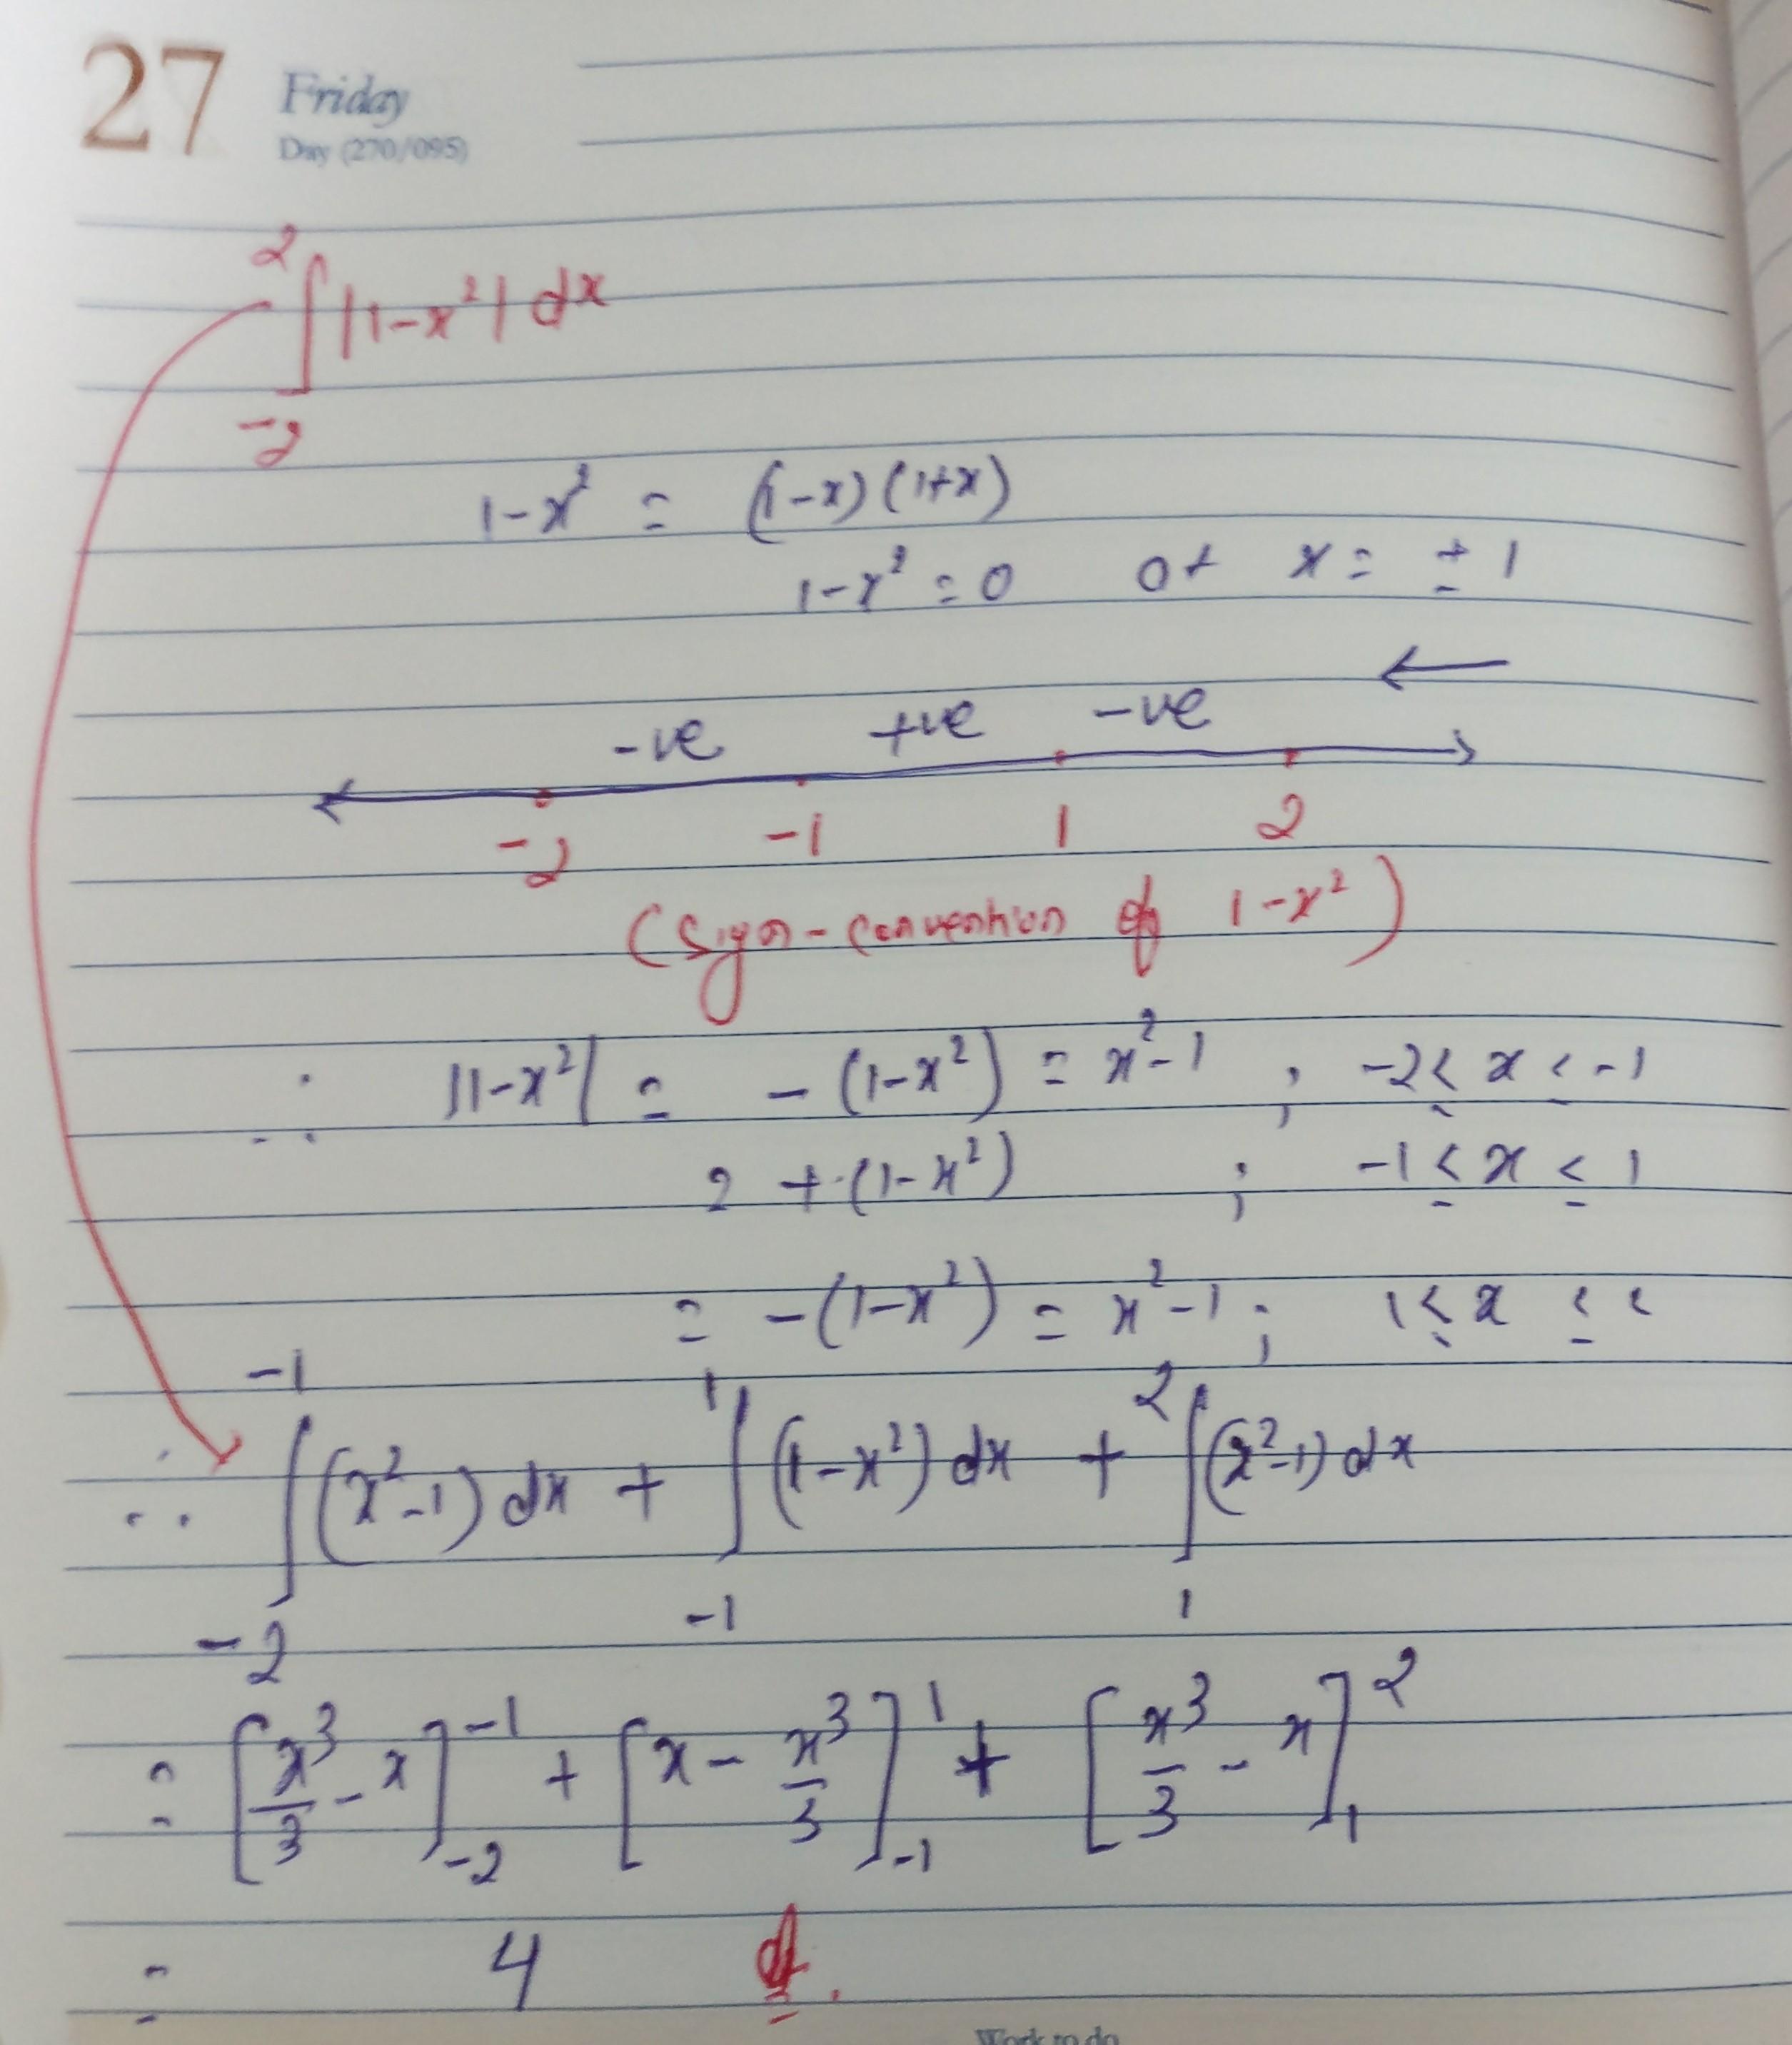 27 Friday
Day (270/095)
∫₋₂² |1-x²| dx
1-x² = (1-x)(1+x)
1-x² = 0 or x = ± 1
-ve +ve -ve
-2 -1 1 2
(Sign-convention of 1-x²)
∴ |1-x²| = -(1-x²) = x²-1 ; -2 ≤ x ≤ -1
= +(1-x²) ; -1 ≤ x ≤ 1
= -(1-x²) = x²-1 ; 1 ≤ x ≤
∴ ∫₋₂⁻¹ (x²-1) dx + ∫₋₁¹ (1-x²) dx + ∫₁² (x²-1) dx
= [x³/3 - x]₋₂⁻¹ + [x - x³/3]₋₁¹ + [x³/3 - x]₁²
= 4
Work to do